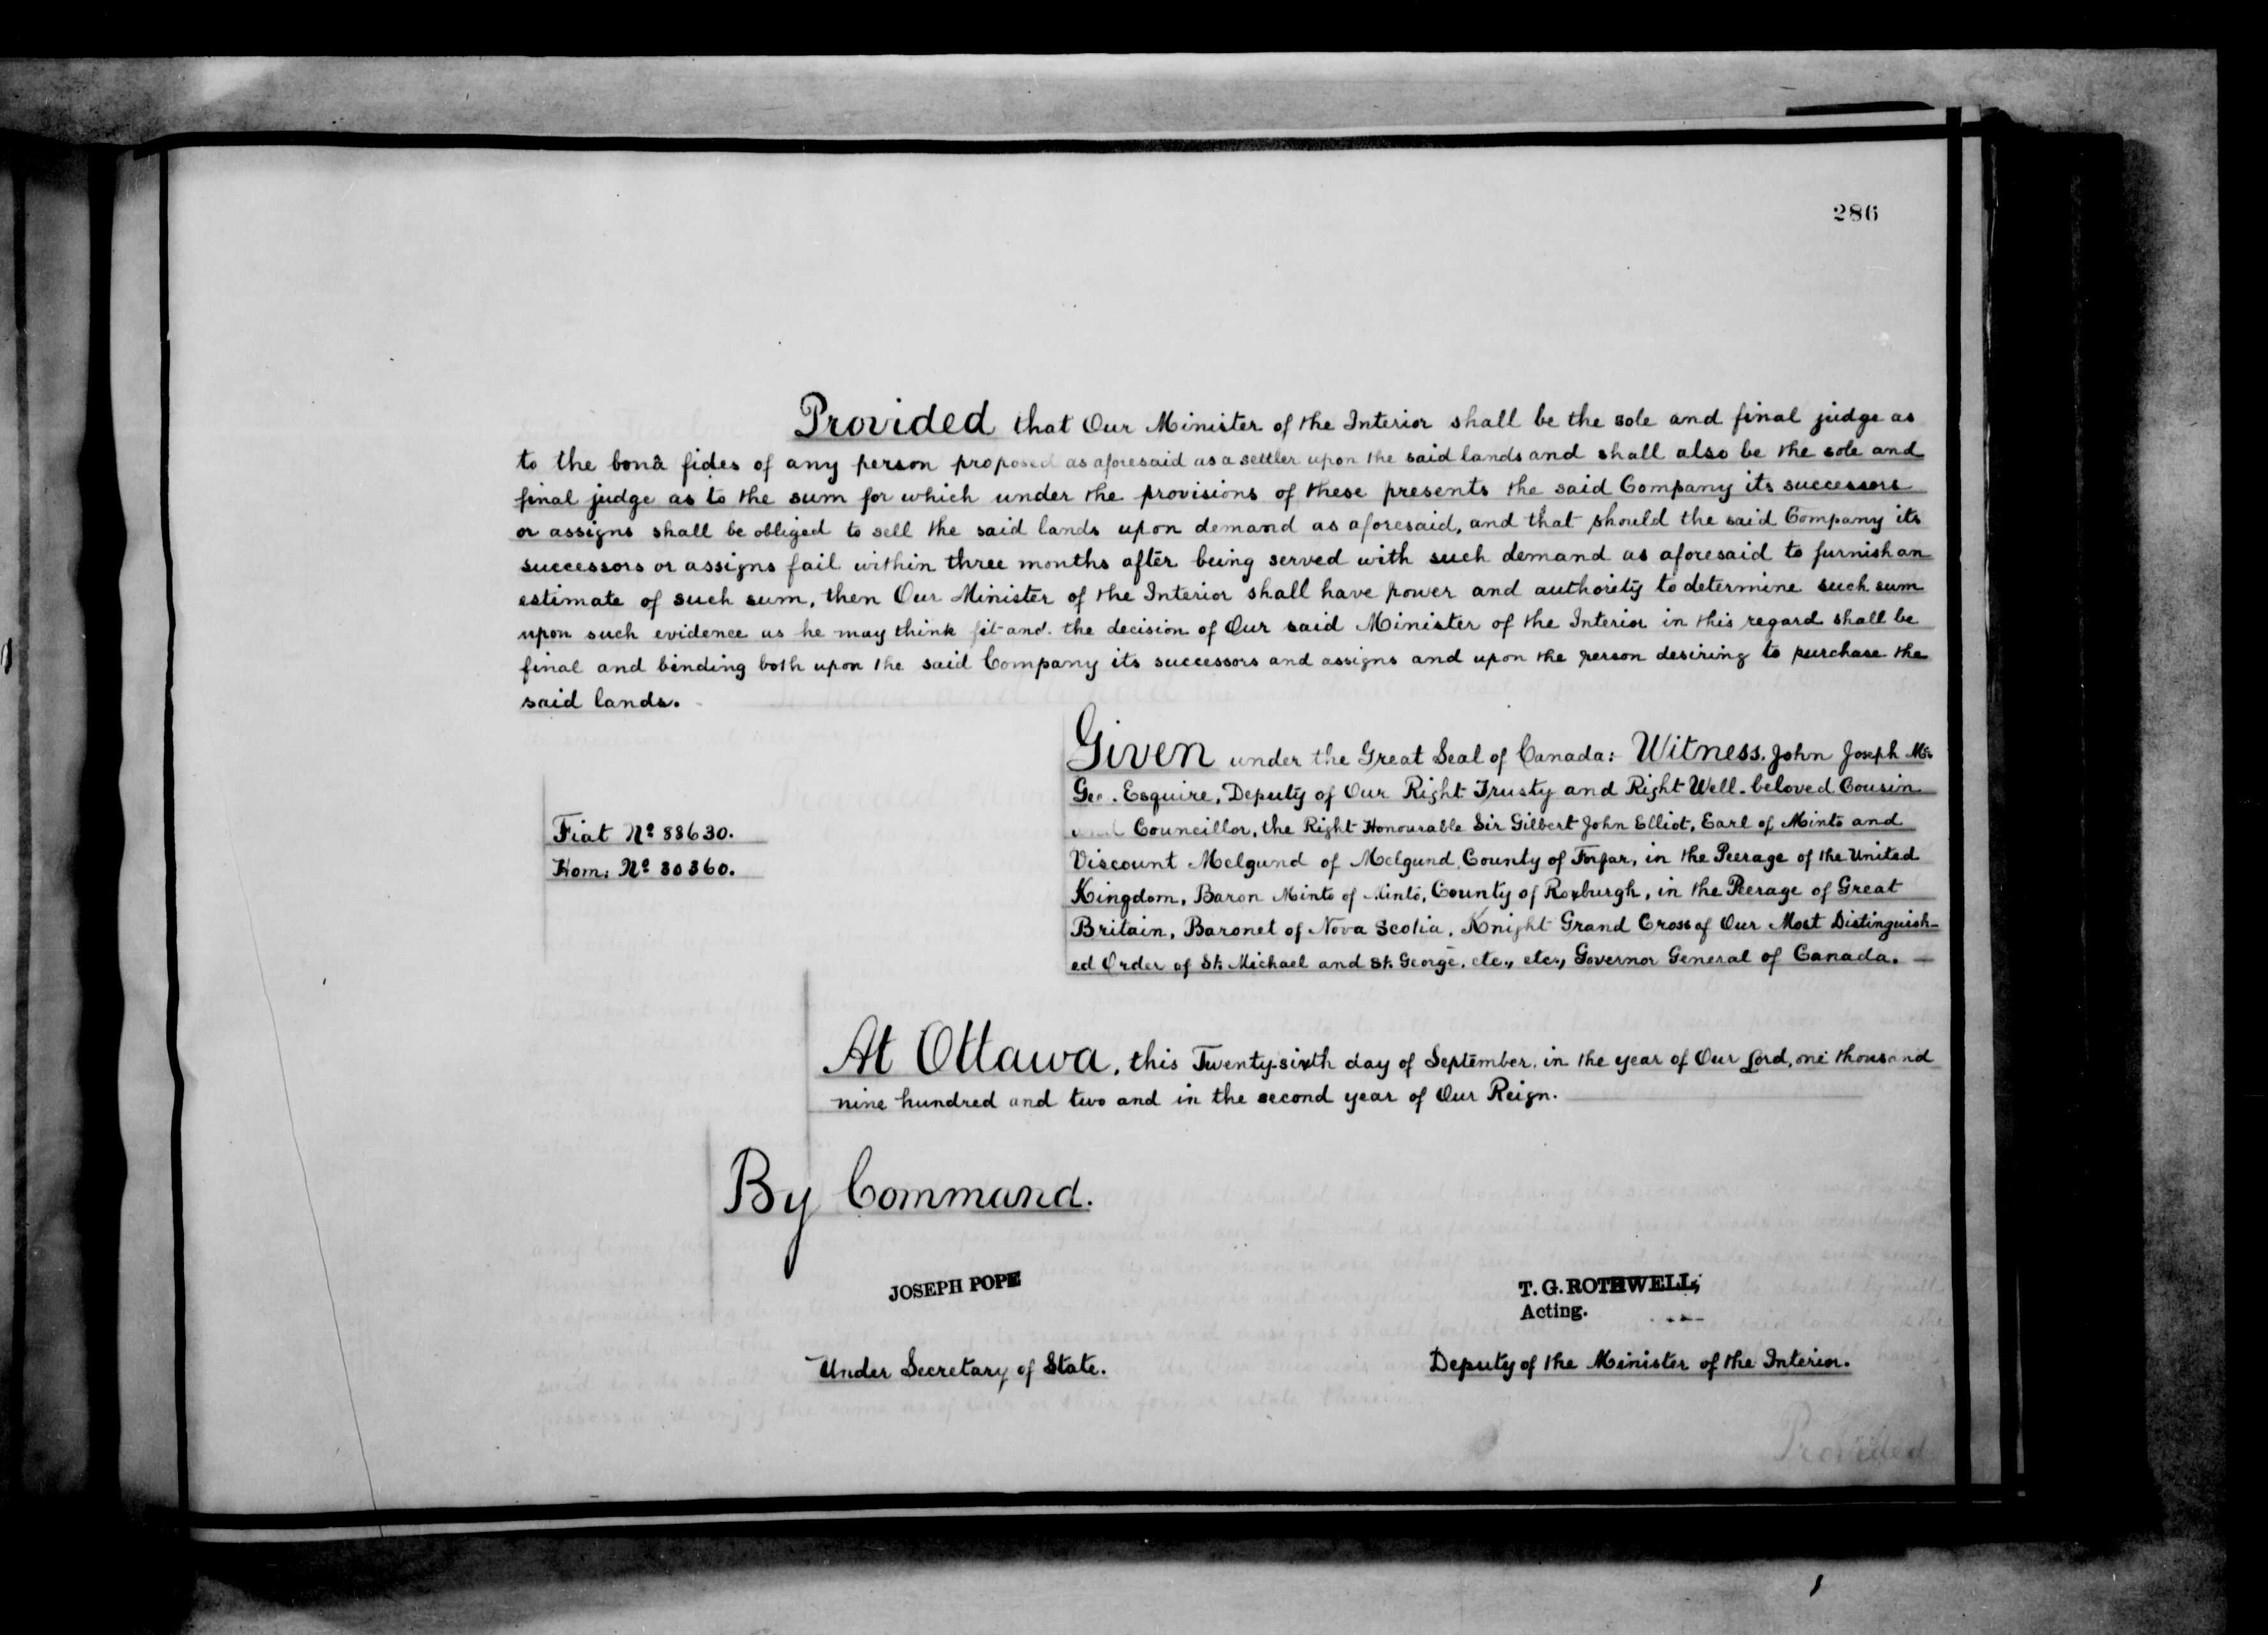 286
Provided that Our Minister of the Interior shall be the sole and final judge as
to the bonâ fides of any person proposed as aforesaid as a settler upon the said lands and shall also be the sole and
final judge as to the sum for which under the provisions of these presents the said Company its successors
or assigns shall be obliged to sell the said lands upon demand as aforesaid, and that should the said Company its
successors or assigns fail within three months after being served with such demand as aforesaid to furnish an
estimate of such sum, then Our Minister of the Interior shall have power and authority to determine such sum
upon such evidence as he may think fit and the decision of Our said Minister of the Interior in this regard shall be
final and binding both upon the said Company its successors and assigns and upon the person desiring to purchase the
said lands.
Given under the Great Seal of Canada: Witness, John Joseph Mc
Gee, Esquire, Deputy of Our Right Trusty and Right Well-beloved Cousin
and Councillor, the Right Honourable Sir Gilbert John Elliot, Earl of Minto and
Viscount Melgund of Melgund, County of Forfar, in the Peerage of the United
Kingdom, Baron Minto of Minto, County of Roxburgh, in the Peerage of Great
Britain, Baronet of Nova Scotia, Knight Grand Cross of Our Most Distinguish-
ed Order of St. Michael and St. George, etc., etc., Governor General of Canada. —
Fiat No. 88630.
Hom: No. 30360.
At Ottawa, this Twenty-sixth day of September, in the year of Our Lord, one thousand
nine hundred and two and in the second year of Our Reign.
By Command.
JOSEPH POPE
Under Secretary of State.
T. G. ROTHWELL,
Acting.
Deputy of the Minister of the Interior.
Provided